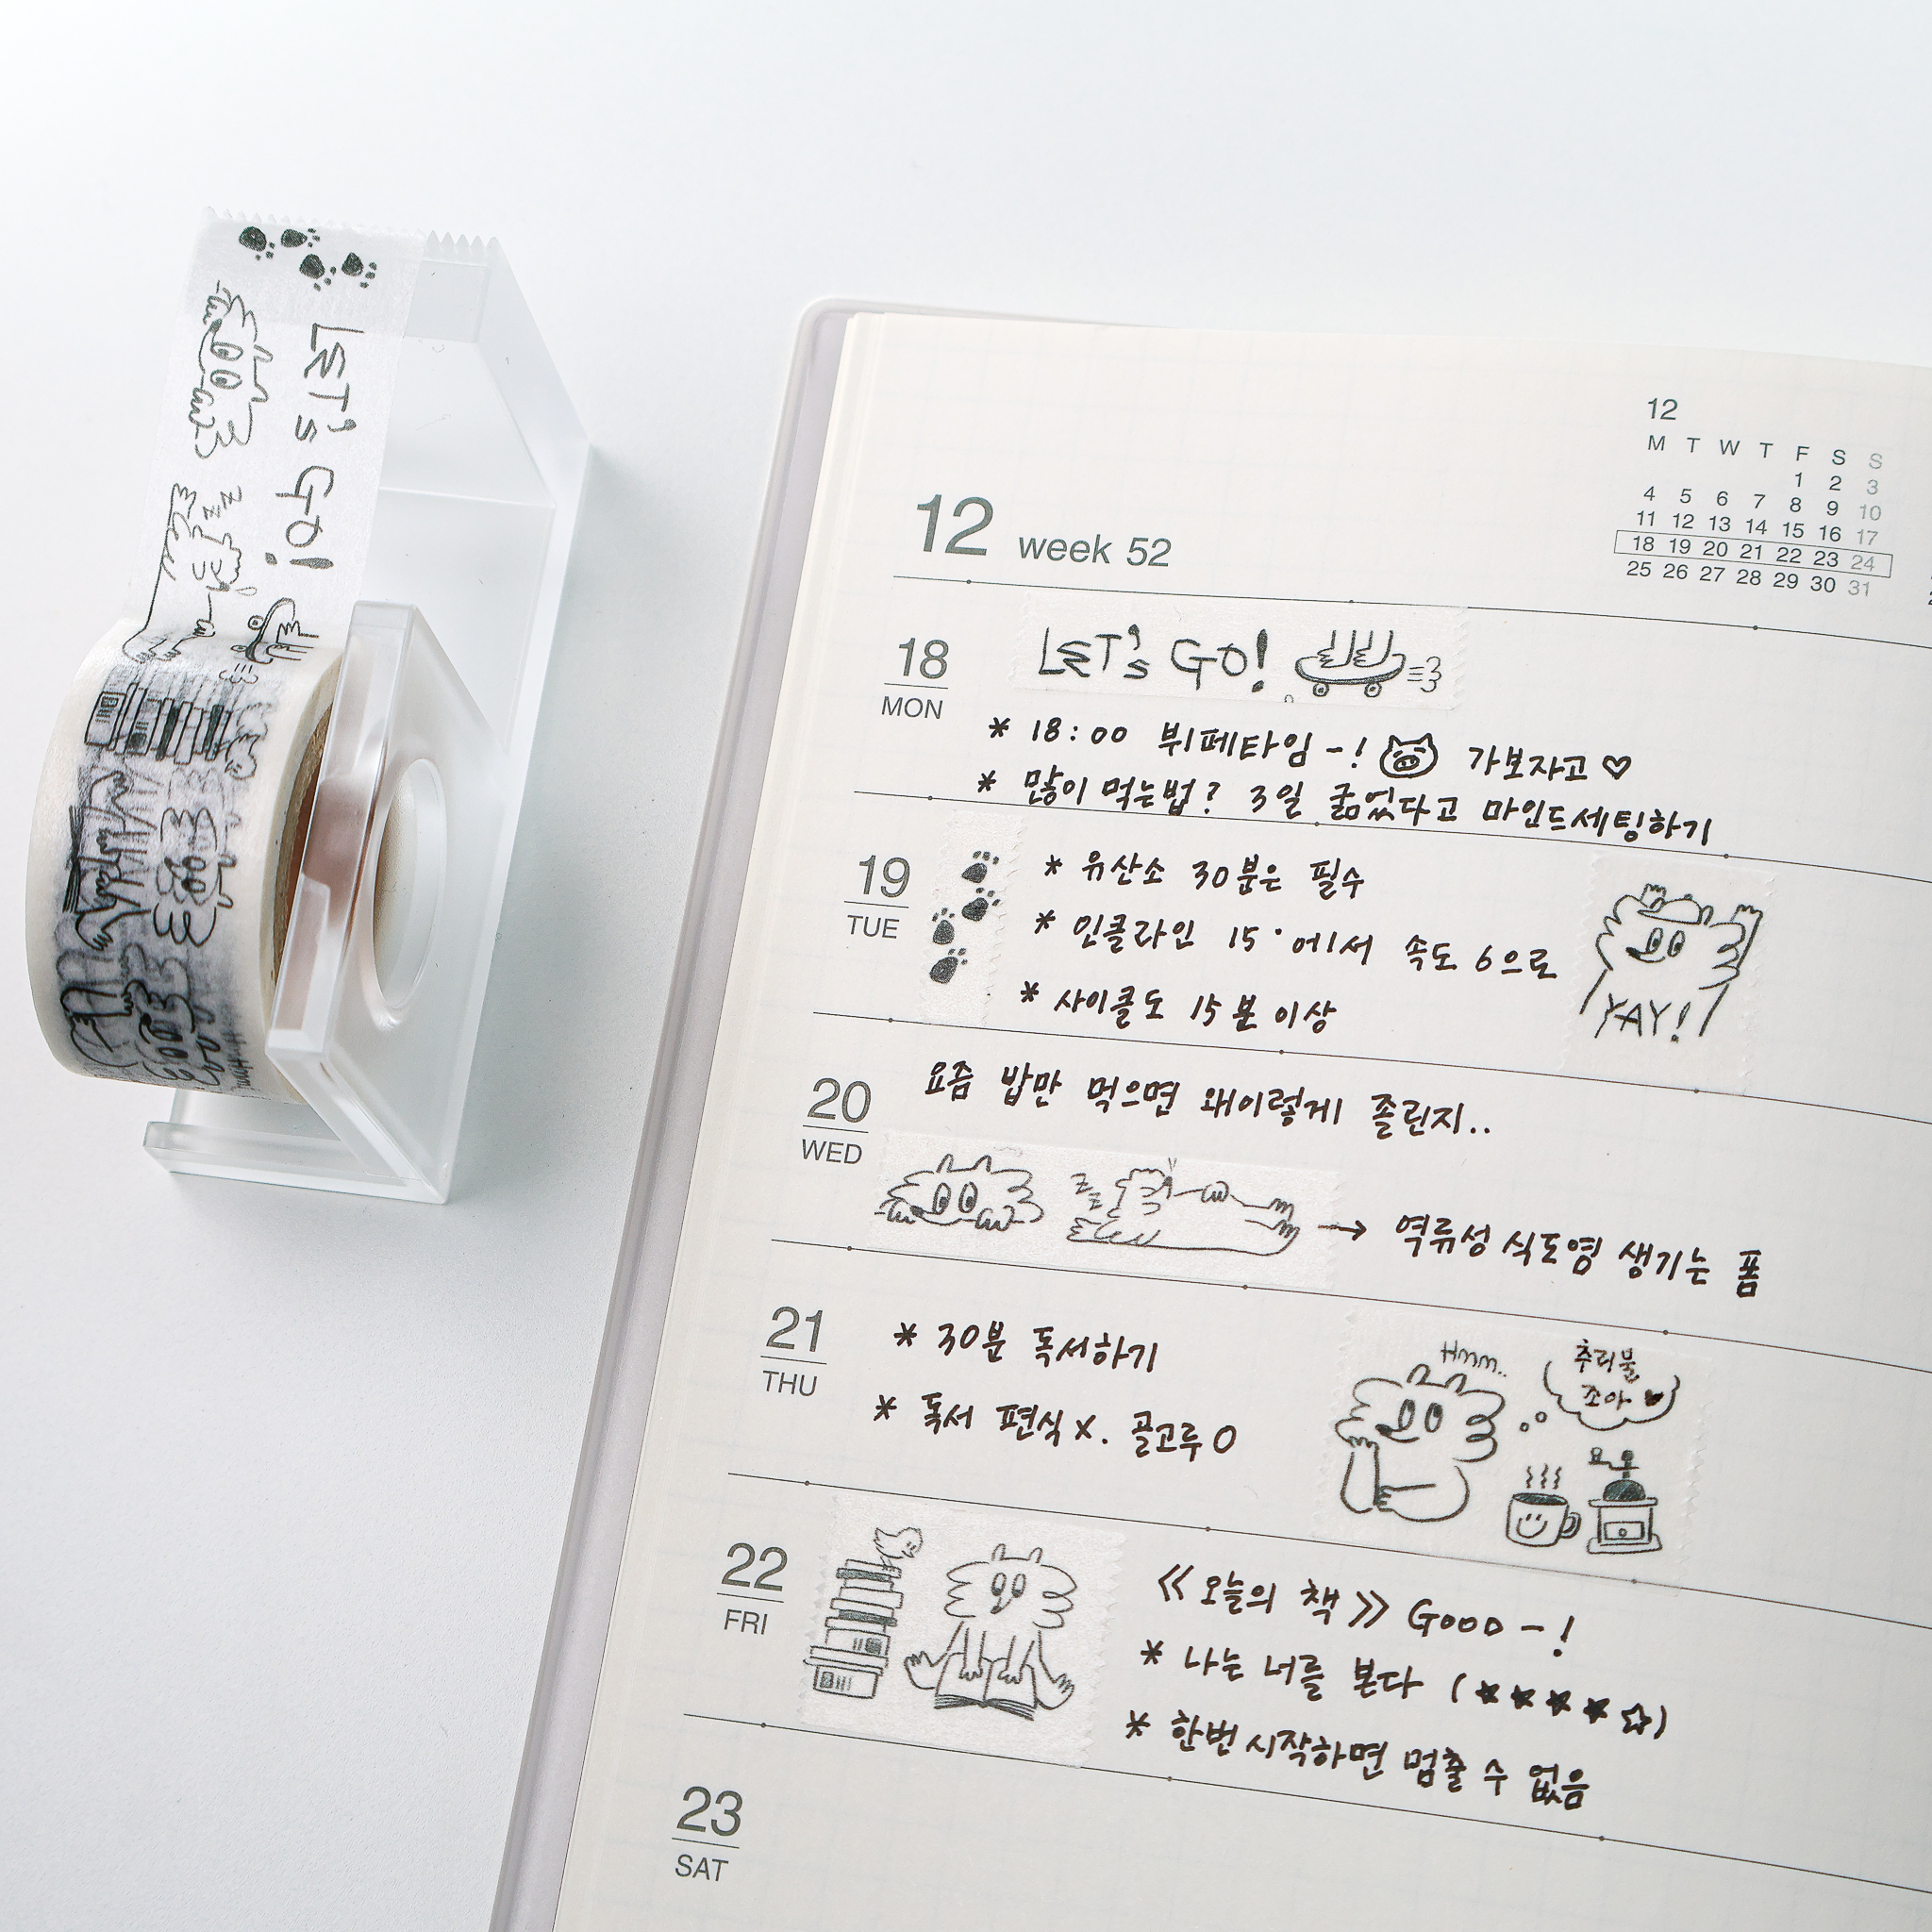 LET's GO!
12
M T W T F S S
1 2 3
4 5 6 7 8 9 10
11 12 13 14 15 16 17
18 19 20 21 22 23 24
25 26 27 28 29 30 31
12 week 52
18
MON
LET's GO!
* 18:00 뷔페타임-! 가보자고♡
* 많이 먹는법? 3일 굶었다고 마인드세팅하기
19
TUE
* 유산소 30분은 필수
* 인클라인 15°에서 속도 6으로
* 사이클도 15분 이상
YAY!
20
WED
요즘 밥만 먹으면 왜이렇게 졸린지..
zzz
→ 역류성 식도염 생기는 폼
21
THU
* 30분 독서하기
* 독서 편식 X. 골고루 O
Hmm..
추리물
조아 ♥
22
FRI
《오늘의 책》 GOOD-!
* 나는 너를 본다 (★★★★☆)
* 한번 시작하면 멈출 수 없음
23
SAT